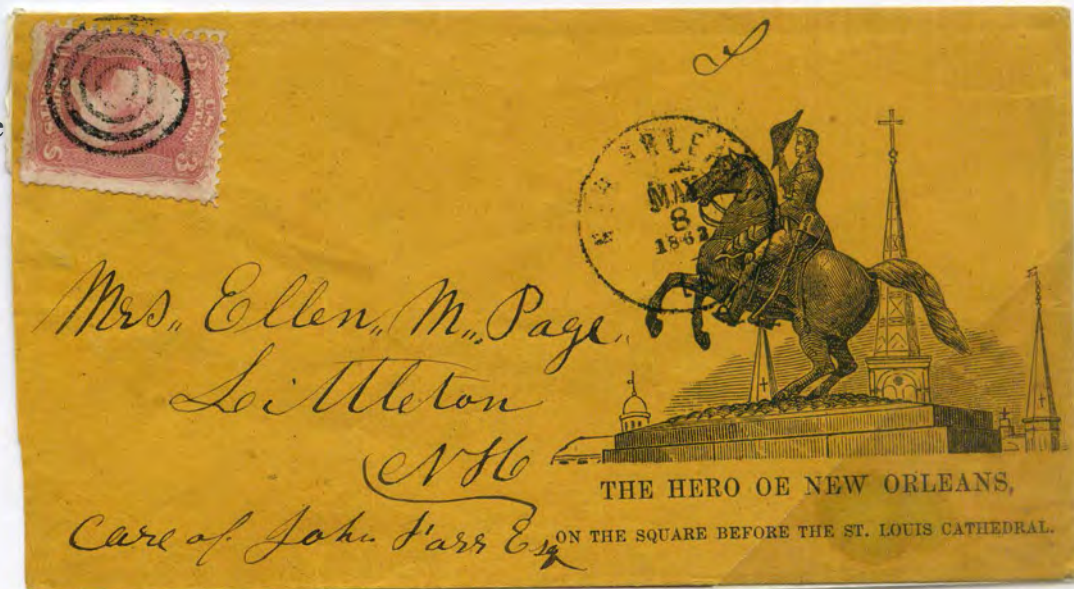 3 3
U.S. POSTAGE
NEW ORLEA
MAY
8
186
Mrs,, Ellen,, M,, Page,,
Littleton
NH
Care of John Farr Esq
THE HERO OE NEW ORLEANS,
ON THE SQUARE BEFORE THE ST. LOUIS CATHEDRAL.